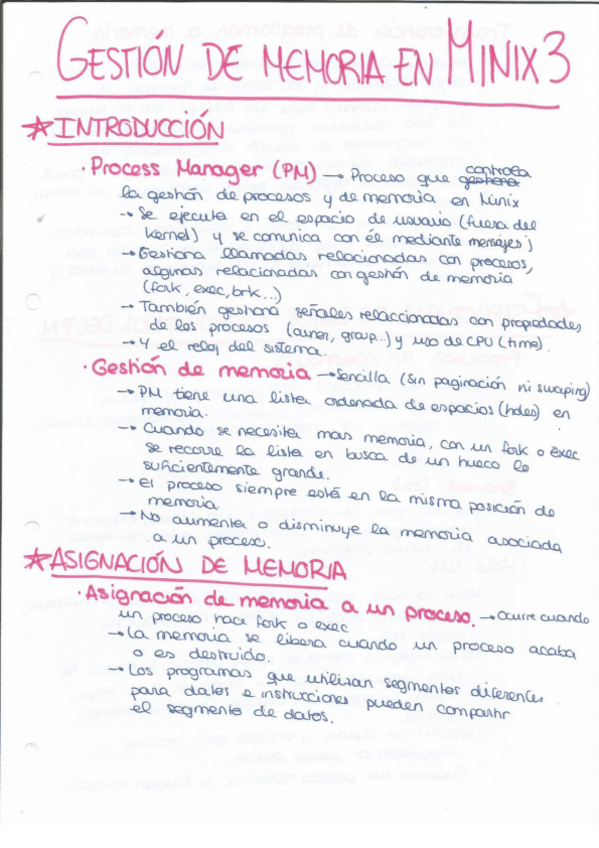 GESTIÓN DE MEMORIA EN MINIX 3
★ INTRODUCCIÓN
· Process Manager (PM) → Proceso que gestiona controla
la gestión de procesos y de memoria en Minix
→ Se ejecuta en el espacio de usuario (fuera del
kernel) y se comunica con él mediante mensajes
→ Gestiona llamadas relacionadas con procesos,
algunas relacionadas con gestión de memoria
(fork, exec, brk...)
→ También gestiona señales relaccionadas con propiedades
de los procesos (owner, group...) y uso de CPU (time).
→ Y el reloj del sistema.
· Gestión de memoria → Sencilla (sin paginación ni swaping)
→ PM tiene una lista ordenada de espacios (holes) en
memoria.
→ Cuando se necesita mas memoria, con un fork o exec
se recorre la lista en busca de un hueco lo
suficientemente grande.
→ El proceso siempre está en la misma posición de
memoria.
→ No aumenta o disminuye la memoria asociada
a un proceso.
★ ASIGNACIÓN DE MEMORIA
· Asignación de memoria a un proceso. → Ocurre cuando
un proceso hace fork o exec
→ La memoria se libera cuando un proceso acaba
o es destruido.
→ Los programas que utilizan segmentos diferentes
para datos e instrucciones pueden compartir
el segmento de datos.